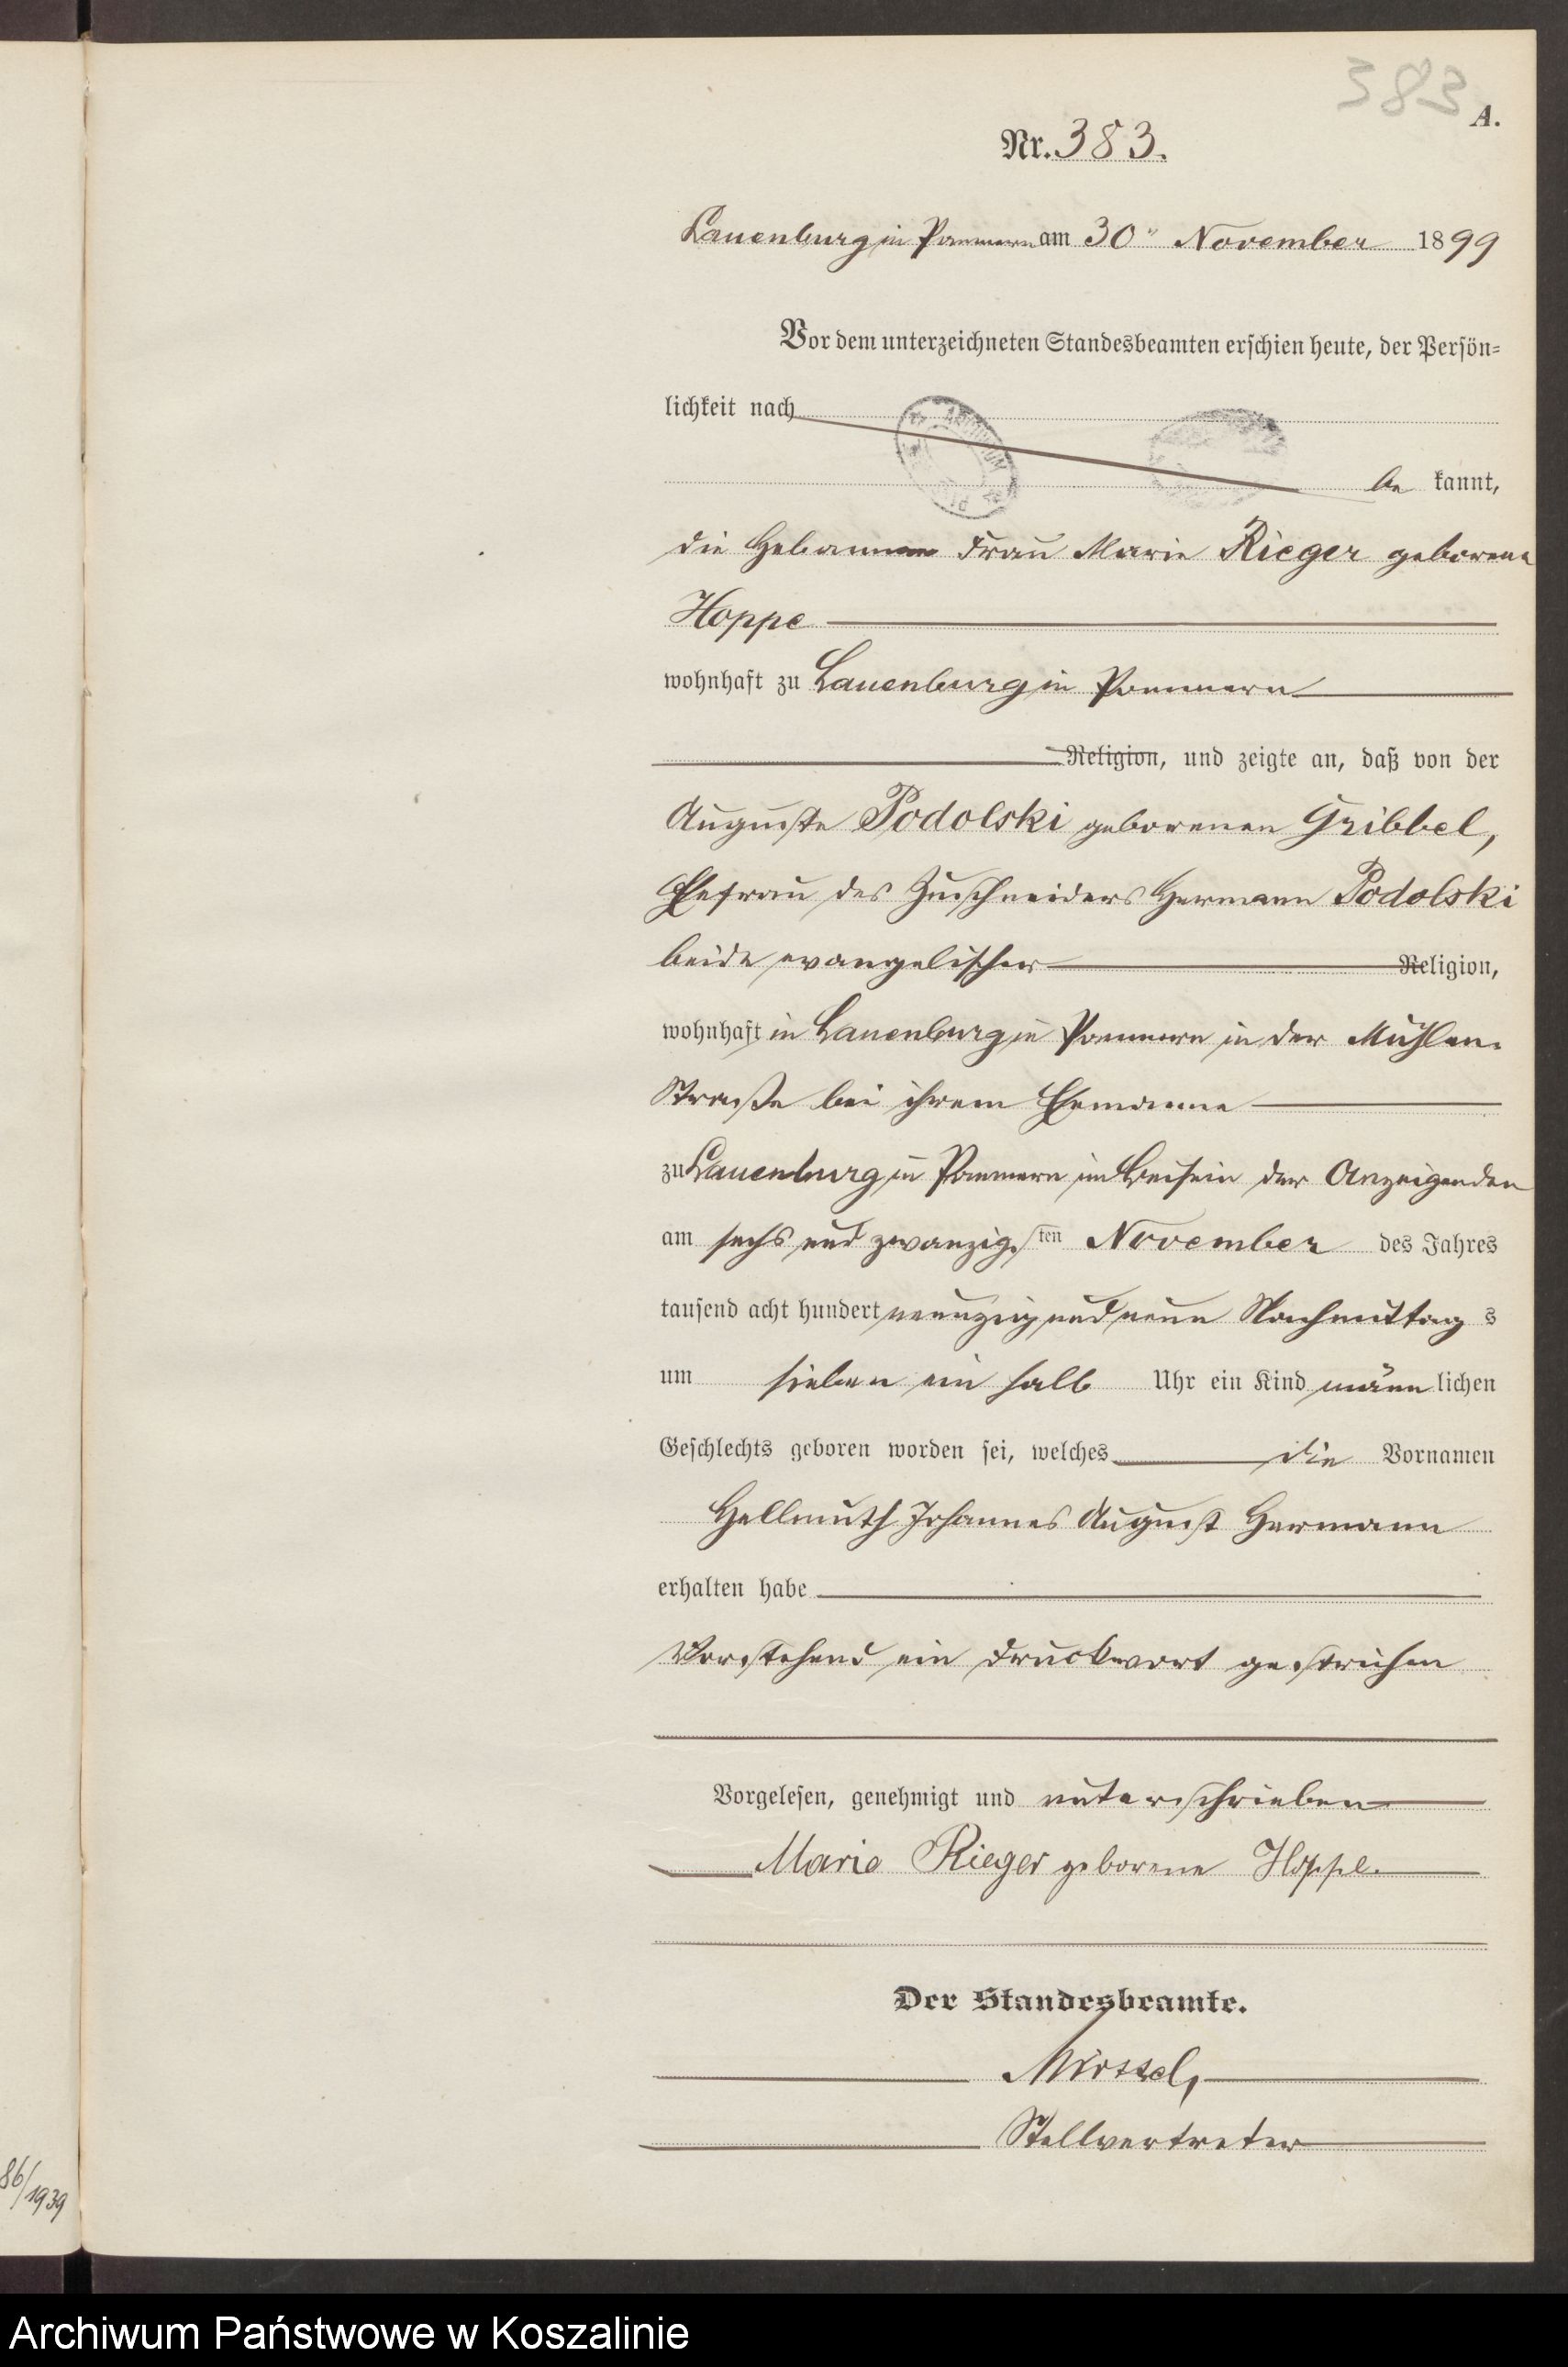 383
A.
Nr. 383.
Lauenburg in Pommern am 30" November 1899
Vor dem unterzeichneten Standesbeamten erschien heute, der Persön=
lichkeit nach
be kannt,
die Hebamme Frau Marie Rieger geborene
Hoppe
wohnhaft zu Lauenburg in Pommern
Religion, und zeigte an, daß von der
Auguste Podolski geborenen Gribbel,
Ehefrau des Zuschneiders Hermann Podolski
beide evangelischer Religion,
wohnhaft in Lauenburg in Pommern in der Mühlen-
Straße bei ihrem Ehemanne
zu Lauenburg in Pommern im Beisein der Anzeigenden
am sechs und zwanzigsten November des Jahres
tausend acht hundert neunzig und neun Nachmittag s
um sieben ein halb Uhr ein Kind männ lichen
Geschlechts geboren worden sei, welches die Vornamen
Hellmuth Johannes August Hermann
erhalten habe
Vorstehend ein Druckwort gestrichen
Vorgelesen, genehmigt und unterschrieben
Marie Rieger geborene Hoppe.
Der Standesbeamte.
Stellvertreter
86/1939
Archiwum Państwowe w Koszalinie